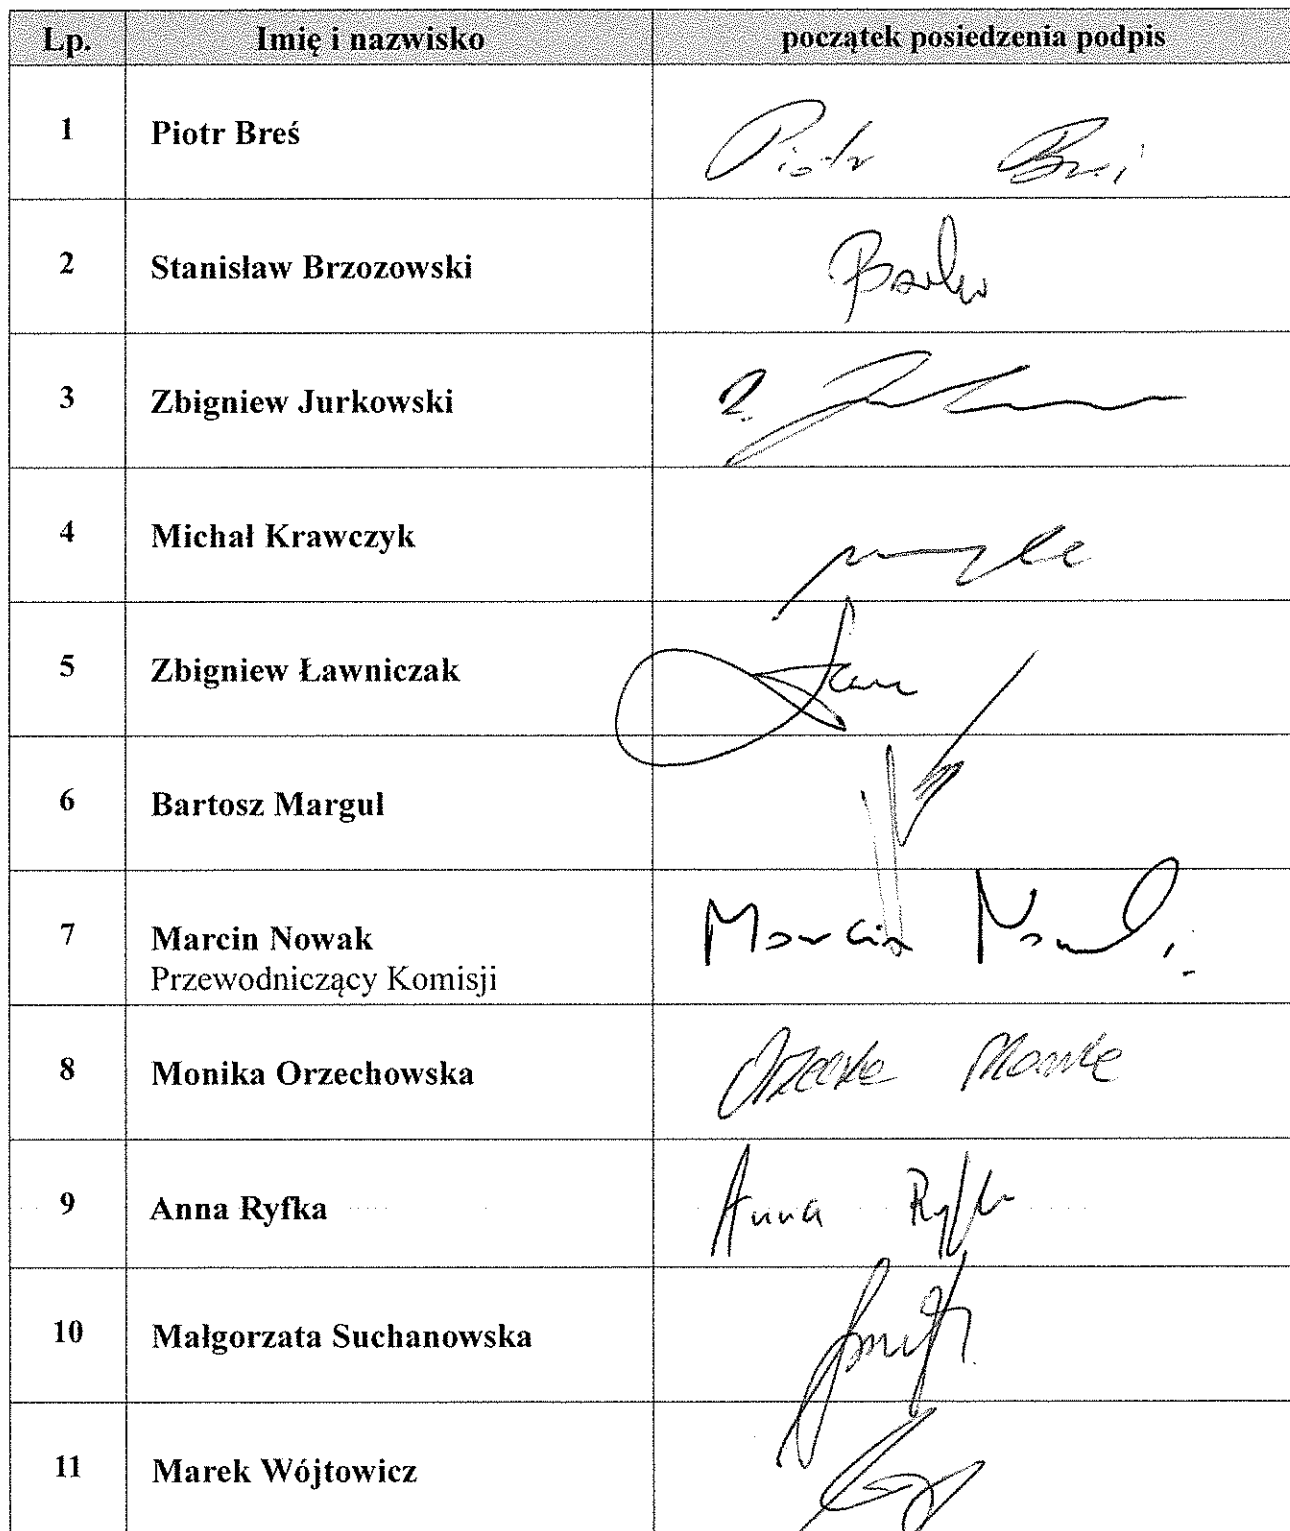 Lp. Imię i nazwisko początek posiedzenia podpis
1 Piotr Breś Piotr Breś
2 Stanisław Brzozowski
3 Zbigniew Jurkowski
4 Michał Krawczyk
5 Zbigniew Ławniczak
6 Bartosz Margul
7 Marcin Nowak Marcin Nowak
Przewodniczący Komisji
8 Monika Orzechowska
9 Anna Ryfka Anna Ryfka
10 Małgorzata Suchanowska
11 Marek Wójtowicz